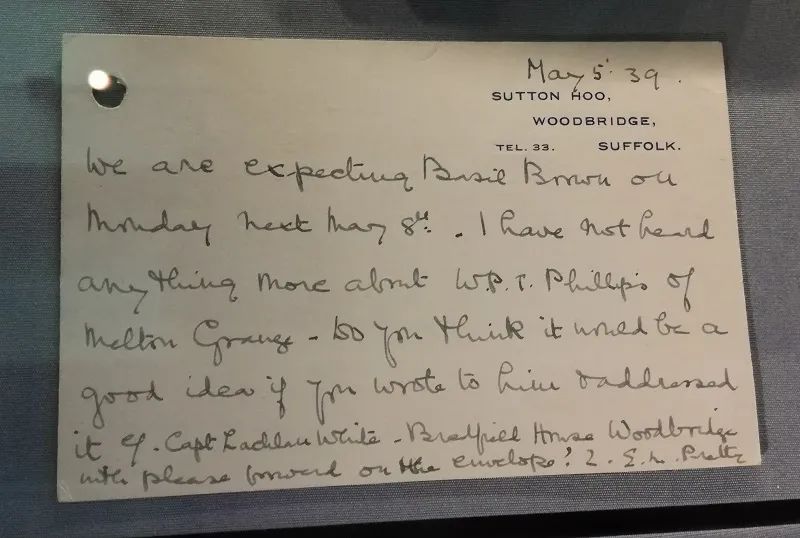 May 5' 39.
SUTTON HOO,
WOODBRIDGE,
TEL. 33. SUFFOLK.
We are expecting Basil Brown on
Monday next May 8th. I have not heard
anything more about W.P.T. Phillips of
Melton Grange - Do you think it would be a
good idea if you wrote to him & addressed
it c/. Capt Lachlan White - Bredfield House Woodbridge
with please forward on the envelope? E. M. Pretty